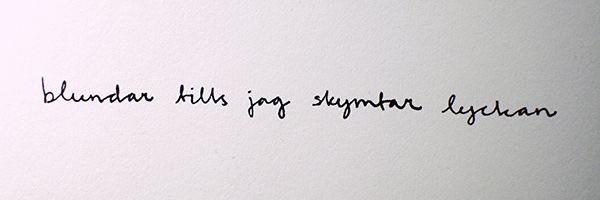 blundar tills jag skymtar lyckan